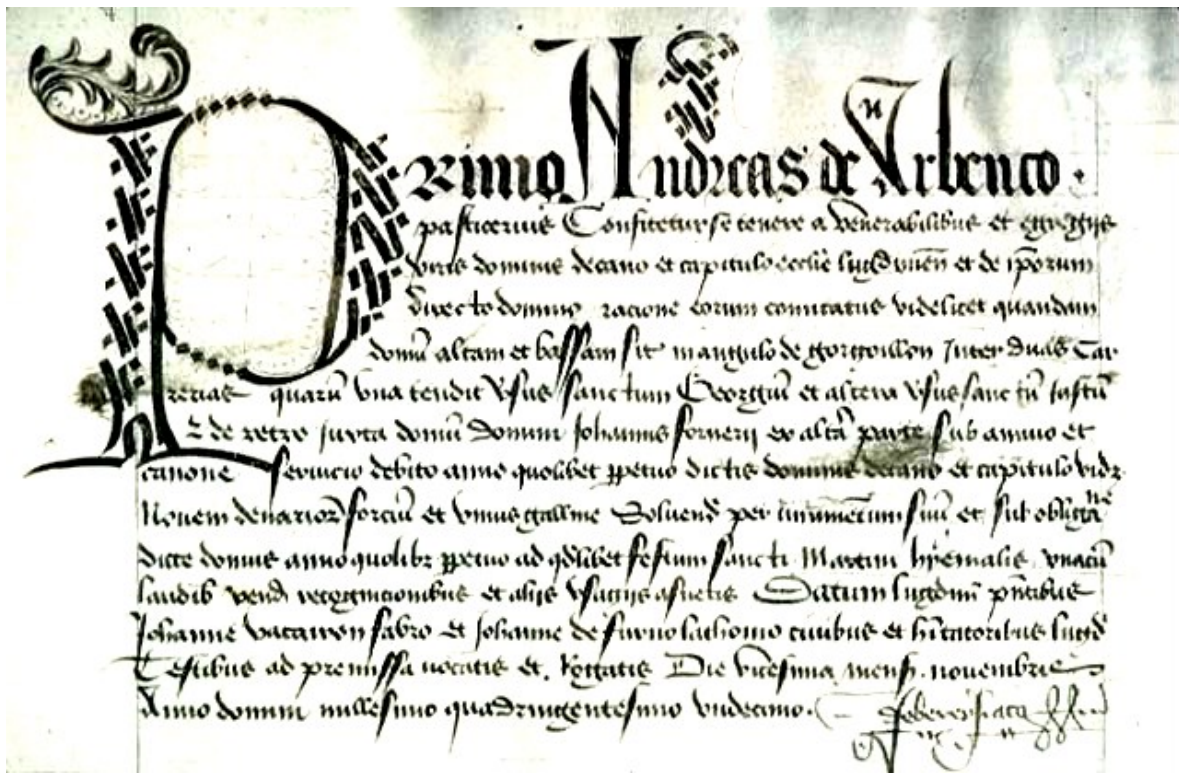 Primo Andreas de Arbenco.
pasticerius Confitetur se tenere a venerabilibus et egregiis
viris dominis decano et capitulo ecclie lugdunen et de ipsorum
directo dominio racione eorum comitatus videlicet quandam
domu altam et bassam sit in angulo de gorgoillon Inter duas Car
rerias quaru una tendit vsus sanctum Georgiu et altera vsus sanctu Justu
de retro juxta domu domini Johannis fornerii ex alta parte sub annuo et
canone servicio debito anno quolibet ppetuo dictis dominis decano et capitulo vidz
Novem denarior forciu et unius galline Solvend per suu et sub obligane
dicte domus anno quolibz ppetuo ad qdlibet festum sancti Martini hyemalis unacu
laudib vend recognicionibus et aliis usagiis assuetis Datum lugduni pntibus
Johanne fabro et Johanne de furno lathomo civibus et hitatoribus lugd
Testibus ad premissa vocatis et Rogatis Die vicesima mens novembris
Anno domini millesimo quadringentesimo undecimo.